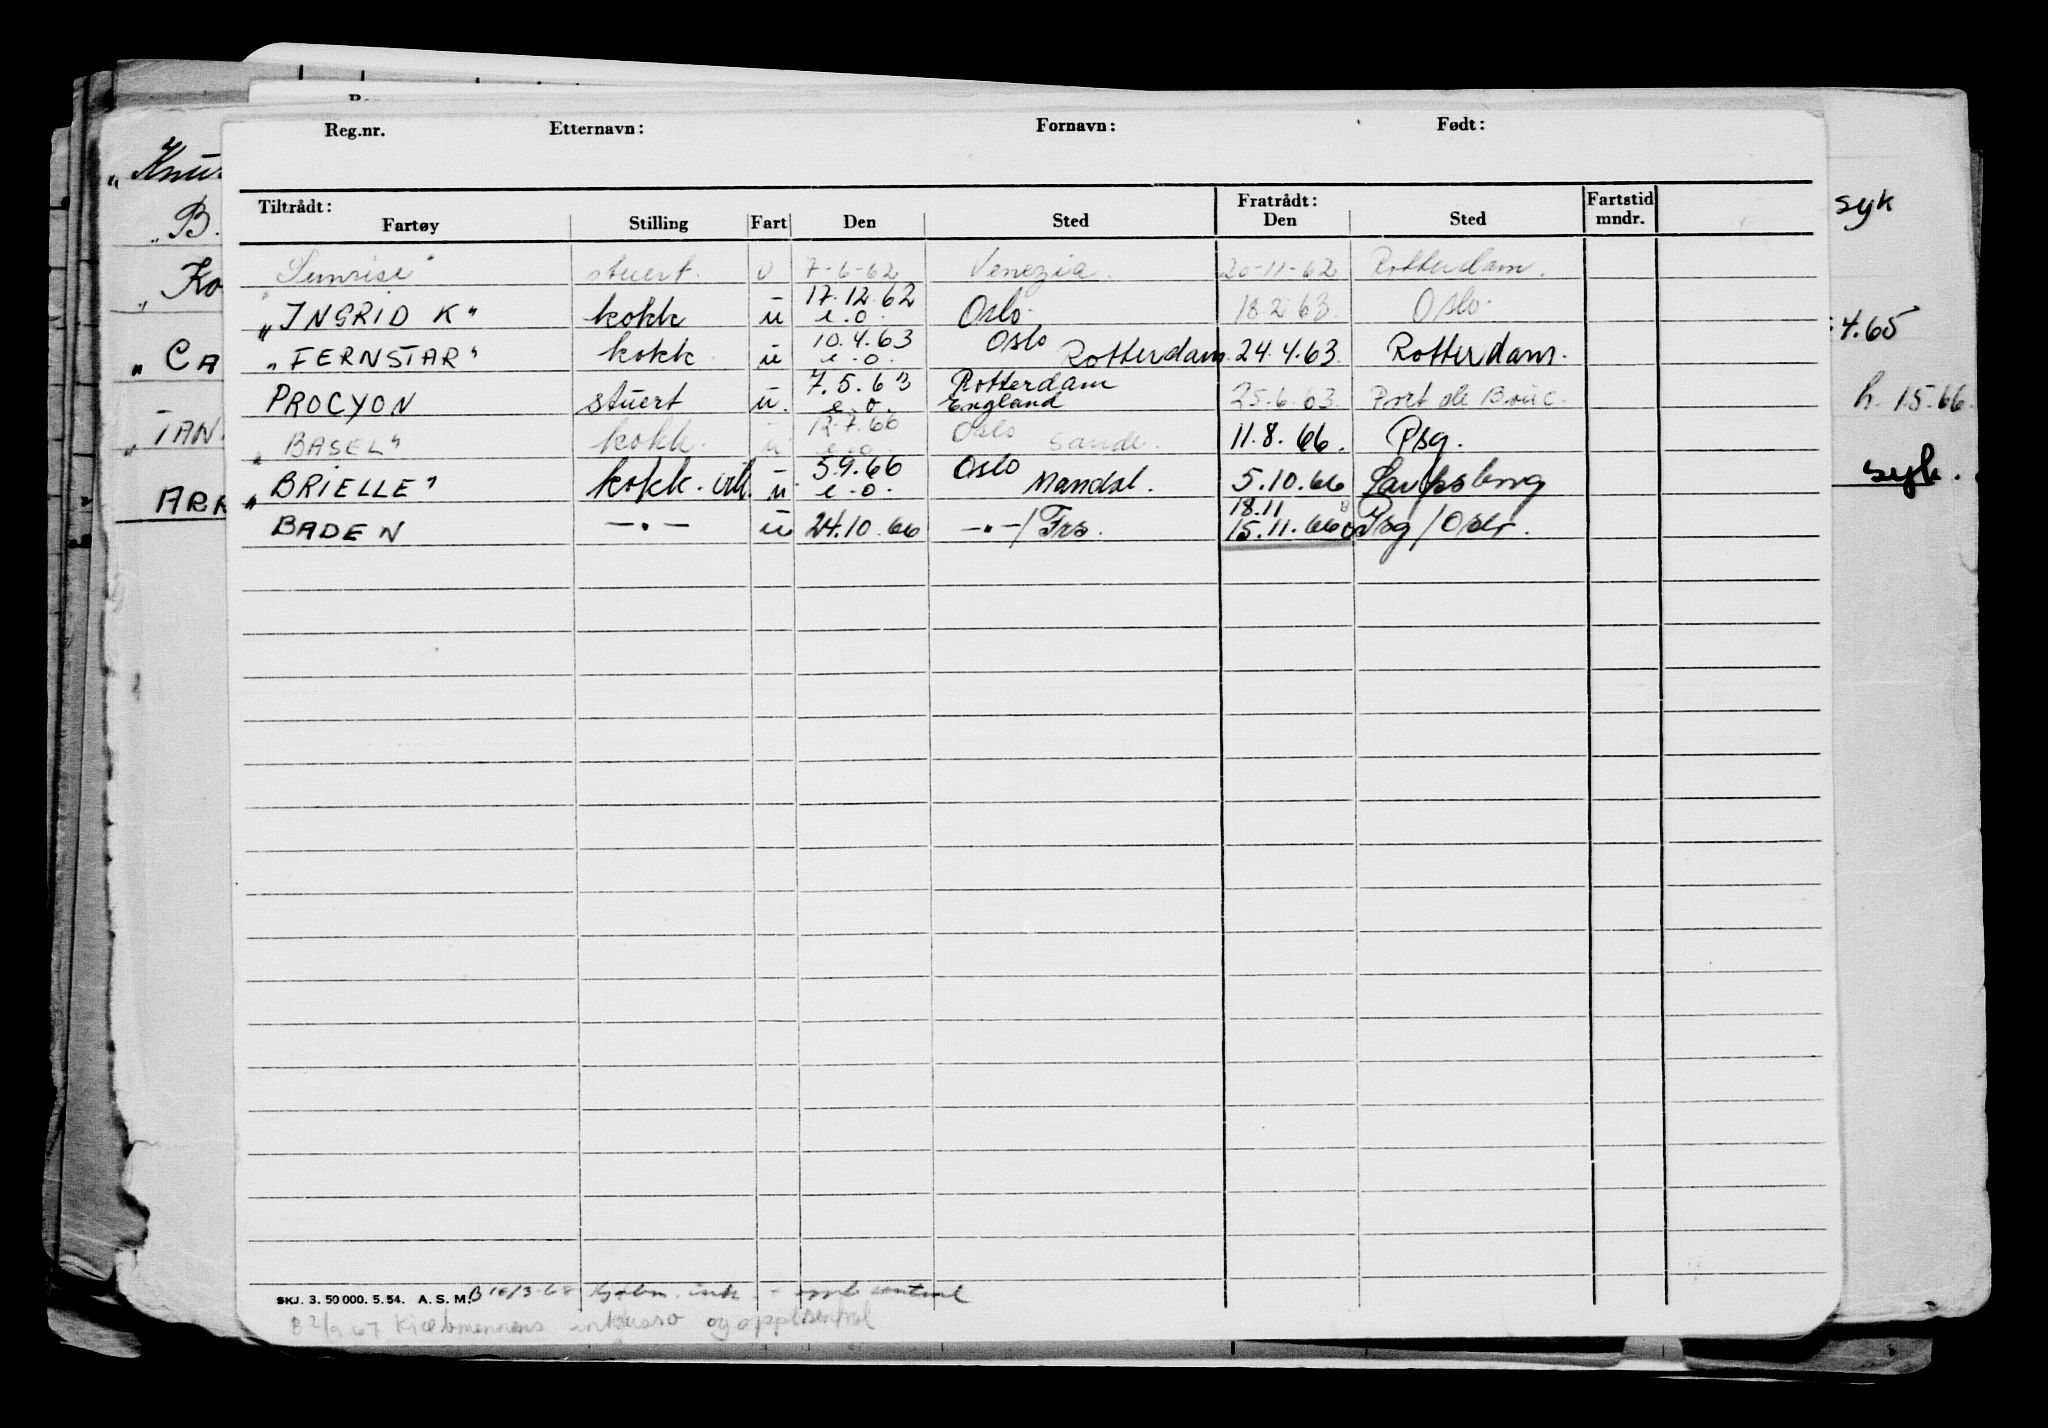 Reg.nr. Etternavn: Fornavn: Født:
Tiltrådt: Fratrådt: Fartstid
Fartøy Stilling Fart Den Sted Den Sted mndr.
"Sunrise" stuert. u 7-6-62 Venezia. 20-11-62 Rotterdam.
17.12.62
"INGRID K" kokk u e.o. Oslo 18.2.63. Oslo
10.4.63 Oslo
"FERNSTAR" kokk u e.o. Rotterdam. 24.4.63. Rotterdam.
7.5.63 Rotterdam
PROCYON stuert u. e.o. England 25.6.63. Port de Bouc.
12.7.66 Oslo
"BASEL" kokk. u e.o. Sande. 11.8.66. Psg.
5.9.66 Oslo
"BRIELLE" kokk. u e.o. Mandal. 5.10.66
18.11
BADEN —"— u 24.10.66 —"—/Frs. 15.11.66 Psg/Oslo.
SKJ. 3. 50 000. 5. 54. A. S. M.
B 2/9 67 Kjøbmennens inkasso og oppl.sentral
"Knu
"B. syk
"Ko
"CA 4.65
"TAN h. 1.5.66.
ARK syk.